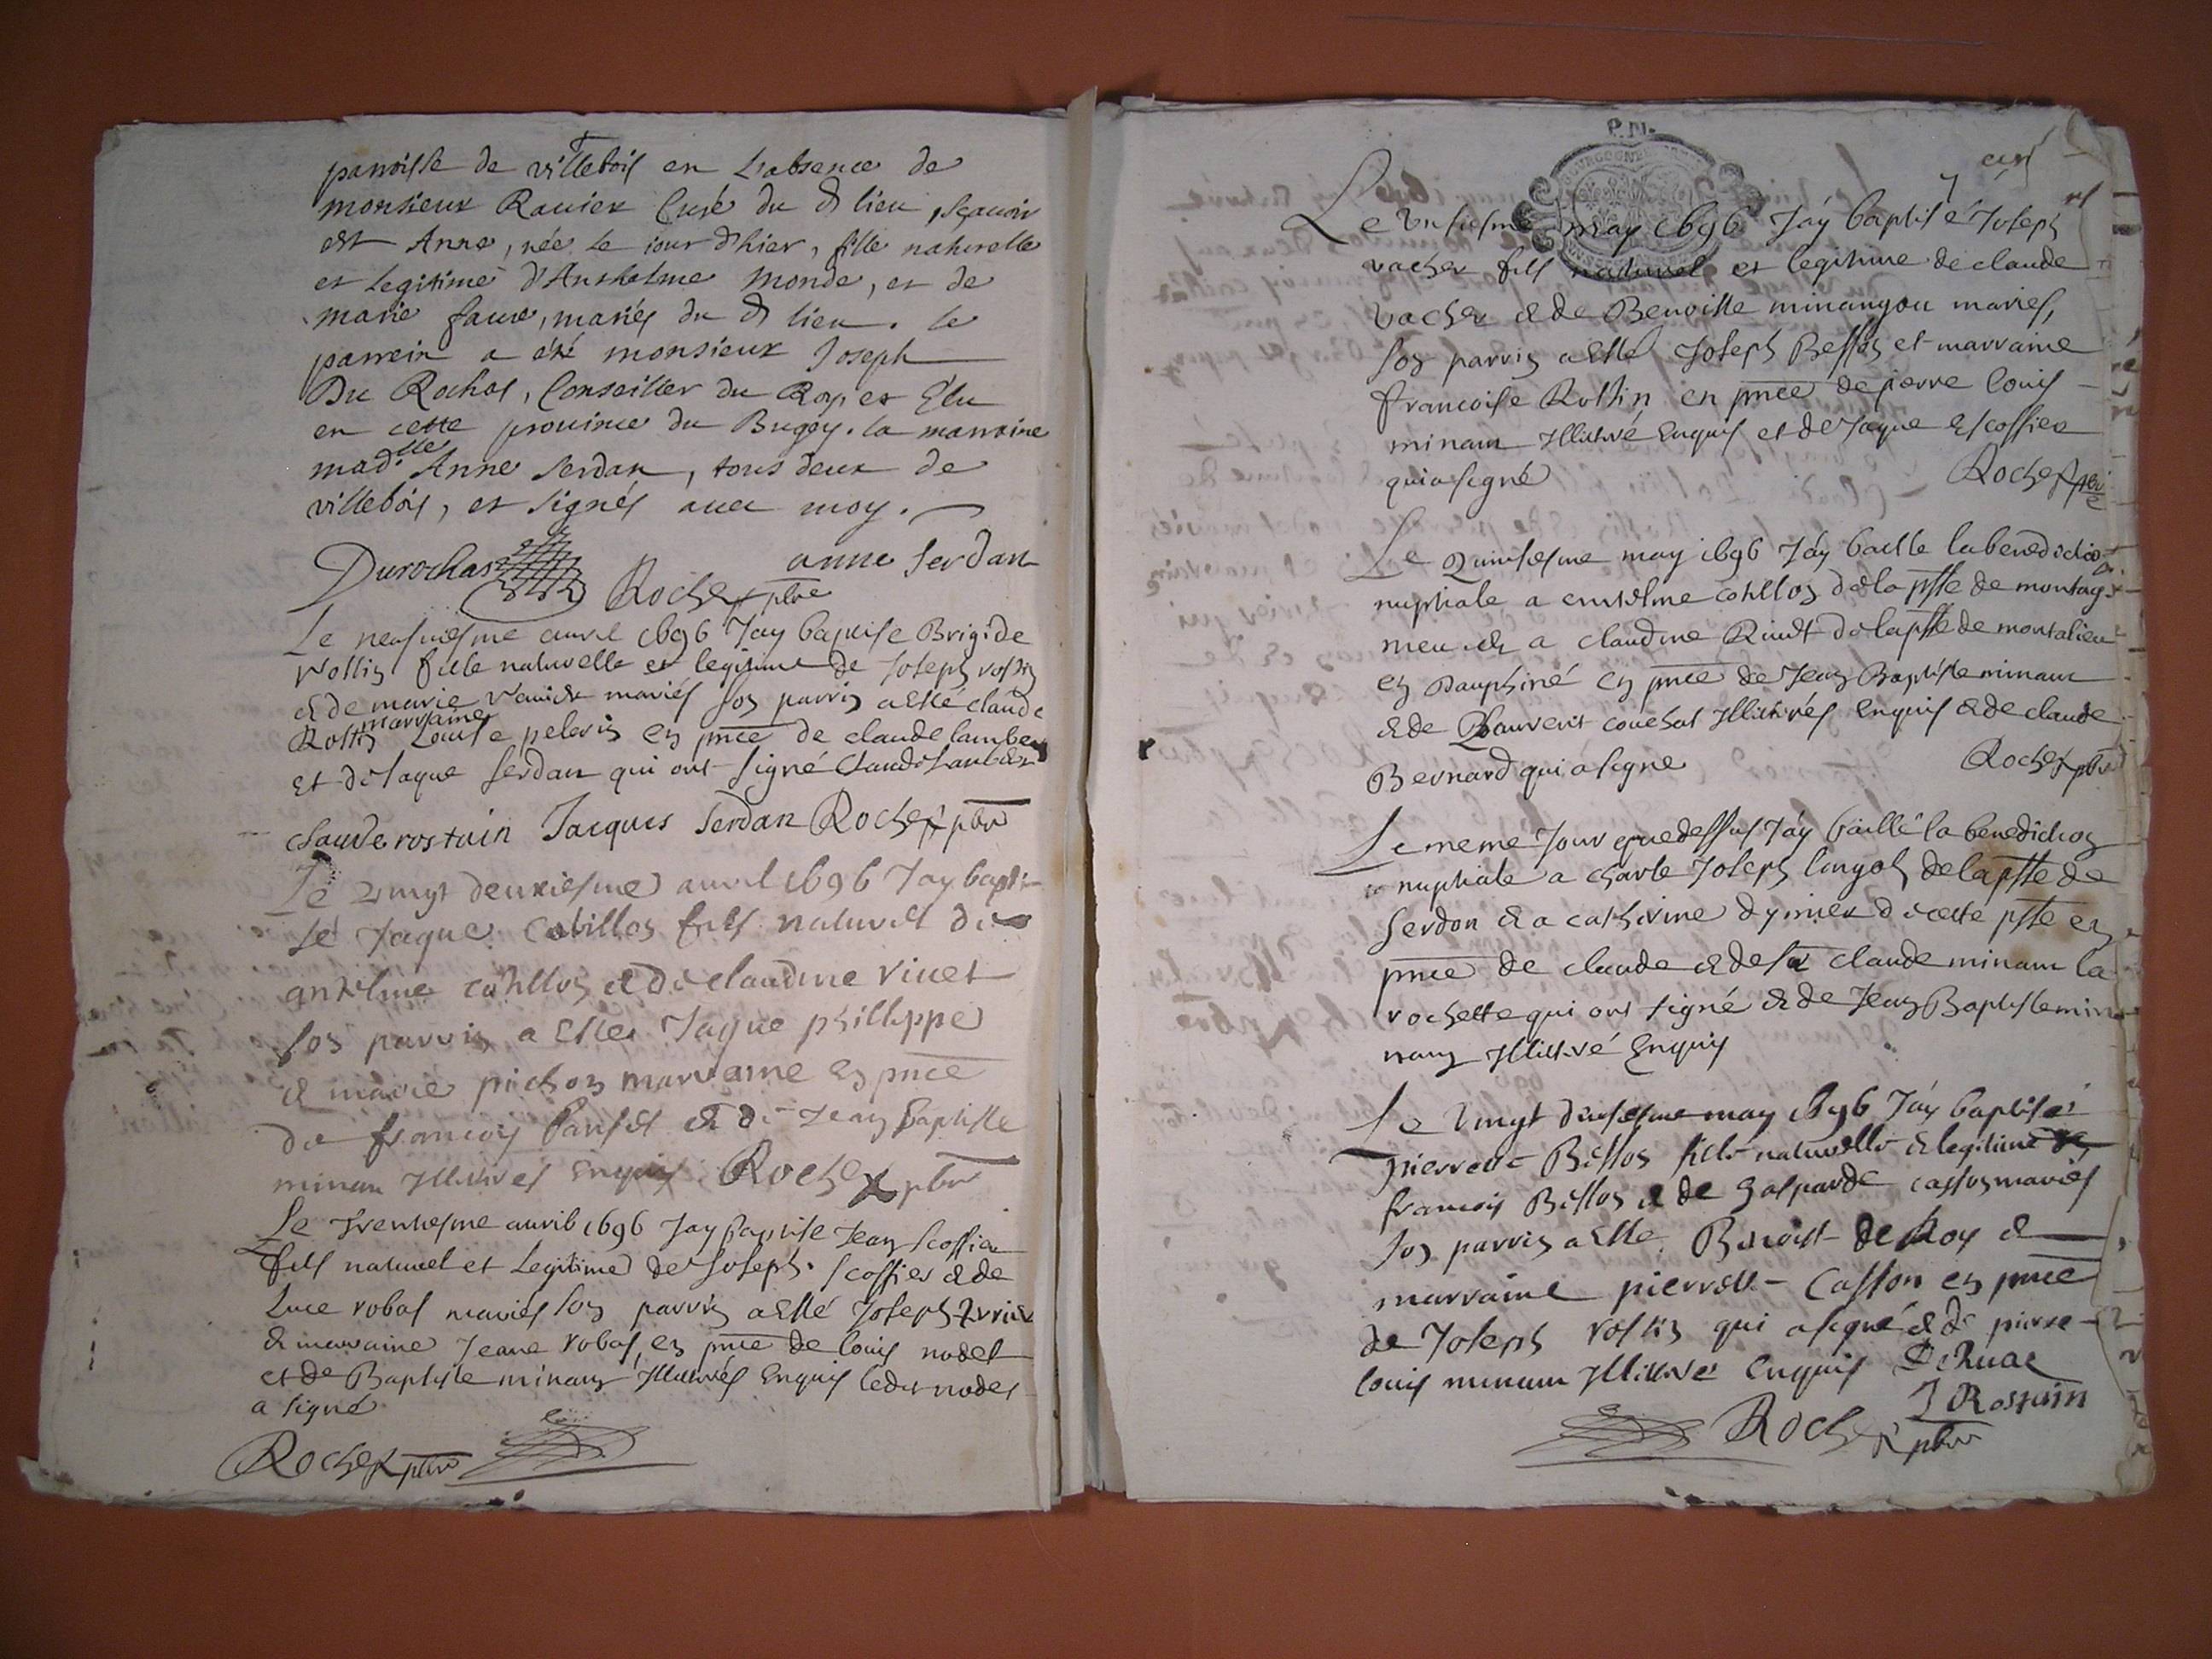 parroisse de villebois en L'absence de
monsieur Ravier Curé du d lieu, sçavoir
est Anne, née le jour d'hier, fille naturelle
et legitime d'Anthelme Monde, et de
marie faure, mariés du d lieu. le
parrein a été monsieur Joseph
Du Rochas, Conseiller du Roy et Elu
en cette province du Bugey. la marreine
mad.lle Anne serdan, tous deux de
villebois, et signés avec moy.
Durochas anne serdan
Rocher pbre
Le neufviesme avril 1696 Jay baptise Brigide
rostin fille naturelle et legitime de Joseph rostin
& de marie ravier mariés son parrin a esté claude
Rostin marraine Louise peloris en pnce de claude lamber
et de Jaque serdan qui ont signé
claude rostain Jacques serdan Rocher pbre
Le vingt deuxiesme avril 1696 Jay bapti-
sé Jaque cotillon fils naturel de
antelme cotillon & de claudine rivet
son parrin a esté Jaque philippe
& marie pichon marraine en pnce
de francois & de Jean Baptiste
minam Illitirés Enquis Rocher pbre
Le trentiesme avril 1696 Jay baptise Jean scoffier
fils naturel et Legitime de Joseph scoffier & de
Luce robas mariés son parrin a esté Joseph
& marraine Jeane robas, en pnce de louis nodet
et de Baptiste minam Illitirés Enquis ledit nodet
a signé
Rocher pbre
P. M.
Le unsiesme may 1696 Jáy baptisé Joseph
vacher fils naturel et legitime de claude
vacher & de Benoiste minangou mariés,
son parrin a esté Joseph Besson et marraine
francoise Rostin en pnce de pierre louis
minam Illitiré Enquis et de Jaque Escoffier
qui a signé Rocher pbre
Le quinsiesme may 1696 Jáy baillé la benediction
nuptiale a antelme cotillon de la psse de montag-
nieu & a claudine Rivet de la psse de montalieu
en Dauphiné en pnce de Jean Baptiste minam
& de couchas Illitirés Enquis & de claude
Bernard qui a signe Rocher pbre
Le meme Jour que dessus Jáy baillé la benediction
nuptiale a charle Joseph de la psse de
serdon & a catherine dymier de cette psse en
pnce de claude & de sr claude minam la
rochette qui ont signé & de Jean Baptiste mi-
nam Illitiré Enquis
Le vingt may 1696 Jáy baptisé
pierrette Billon fille naturelle & legitime de
francois Billon & de gasparde casson mariés
son parrin a esté Benoist de Roy &
marraine pierrette Casson en pnce
de Joseph rostin qui a signé & de pierre
louis minam Illitiré Enquis
J Rostain
Rocher pbre